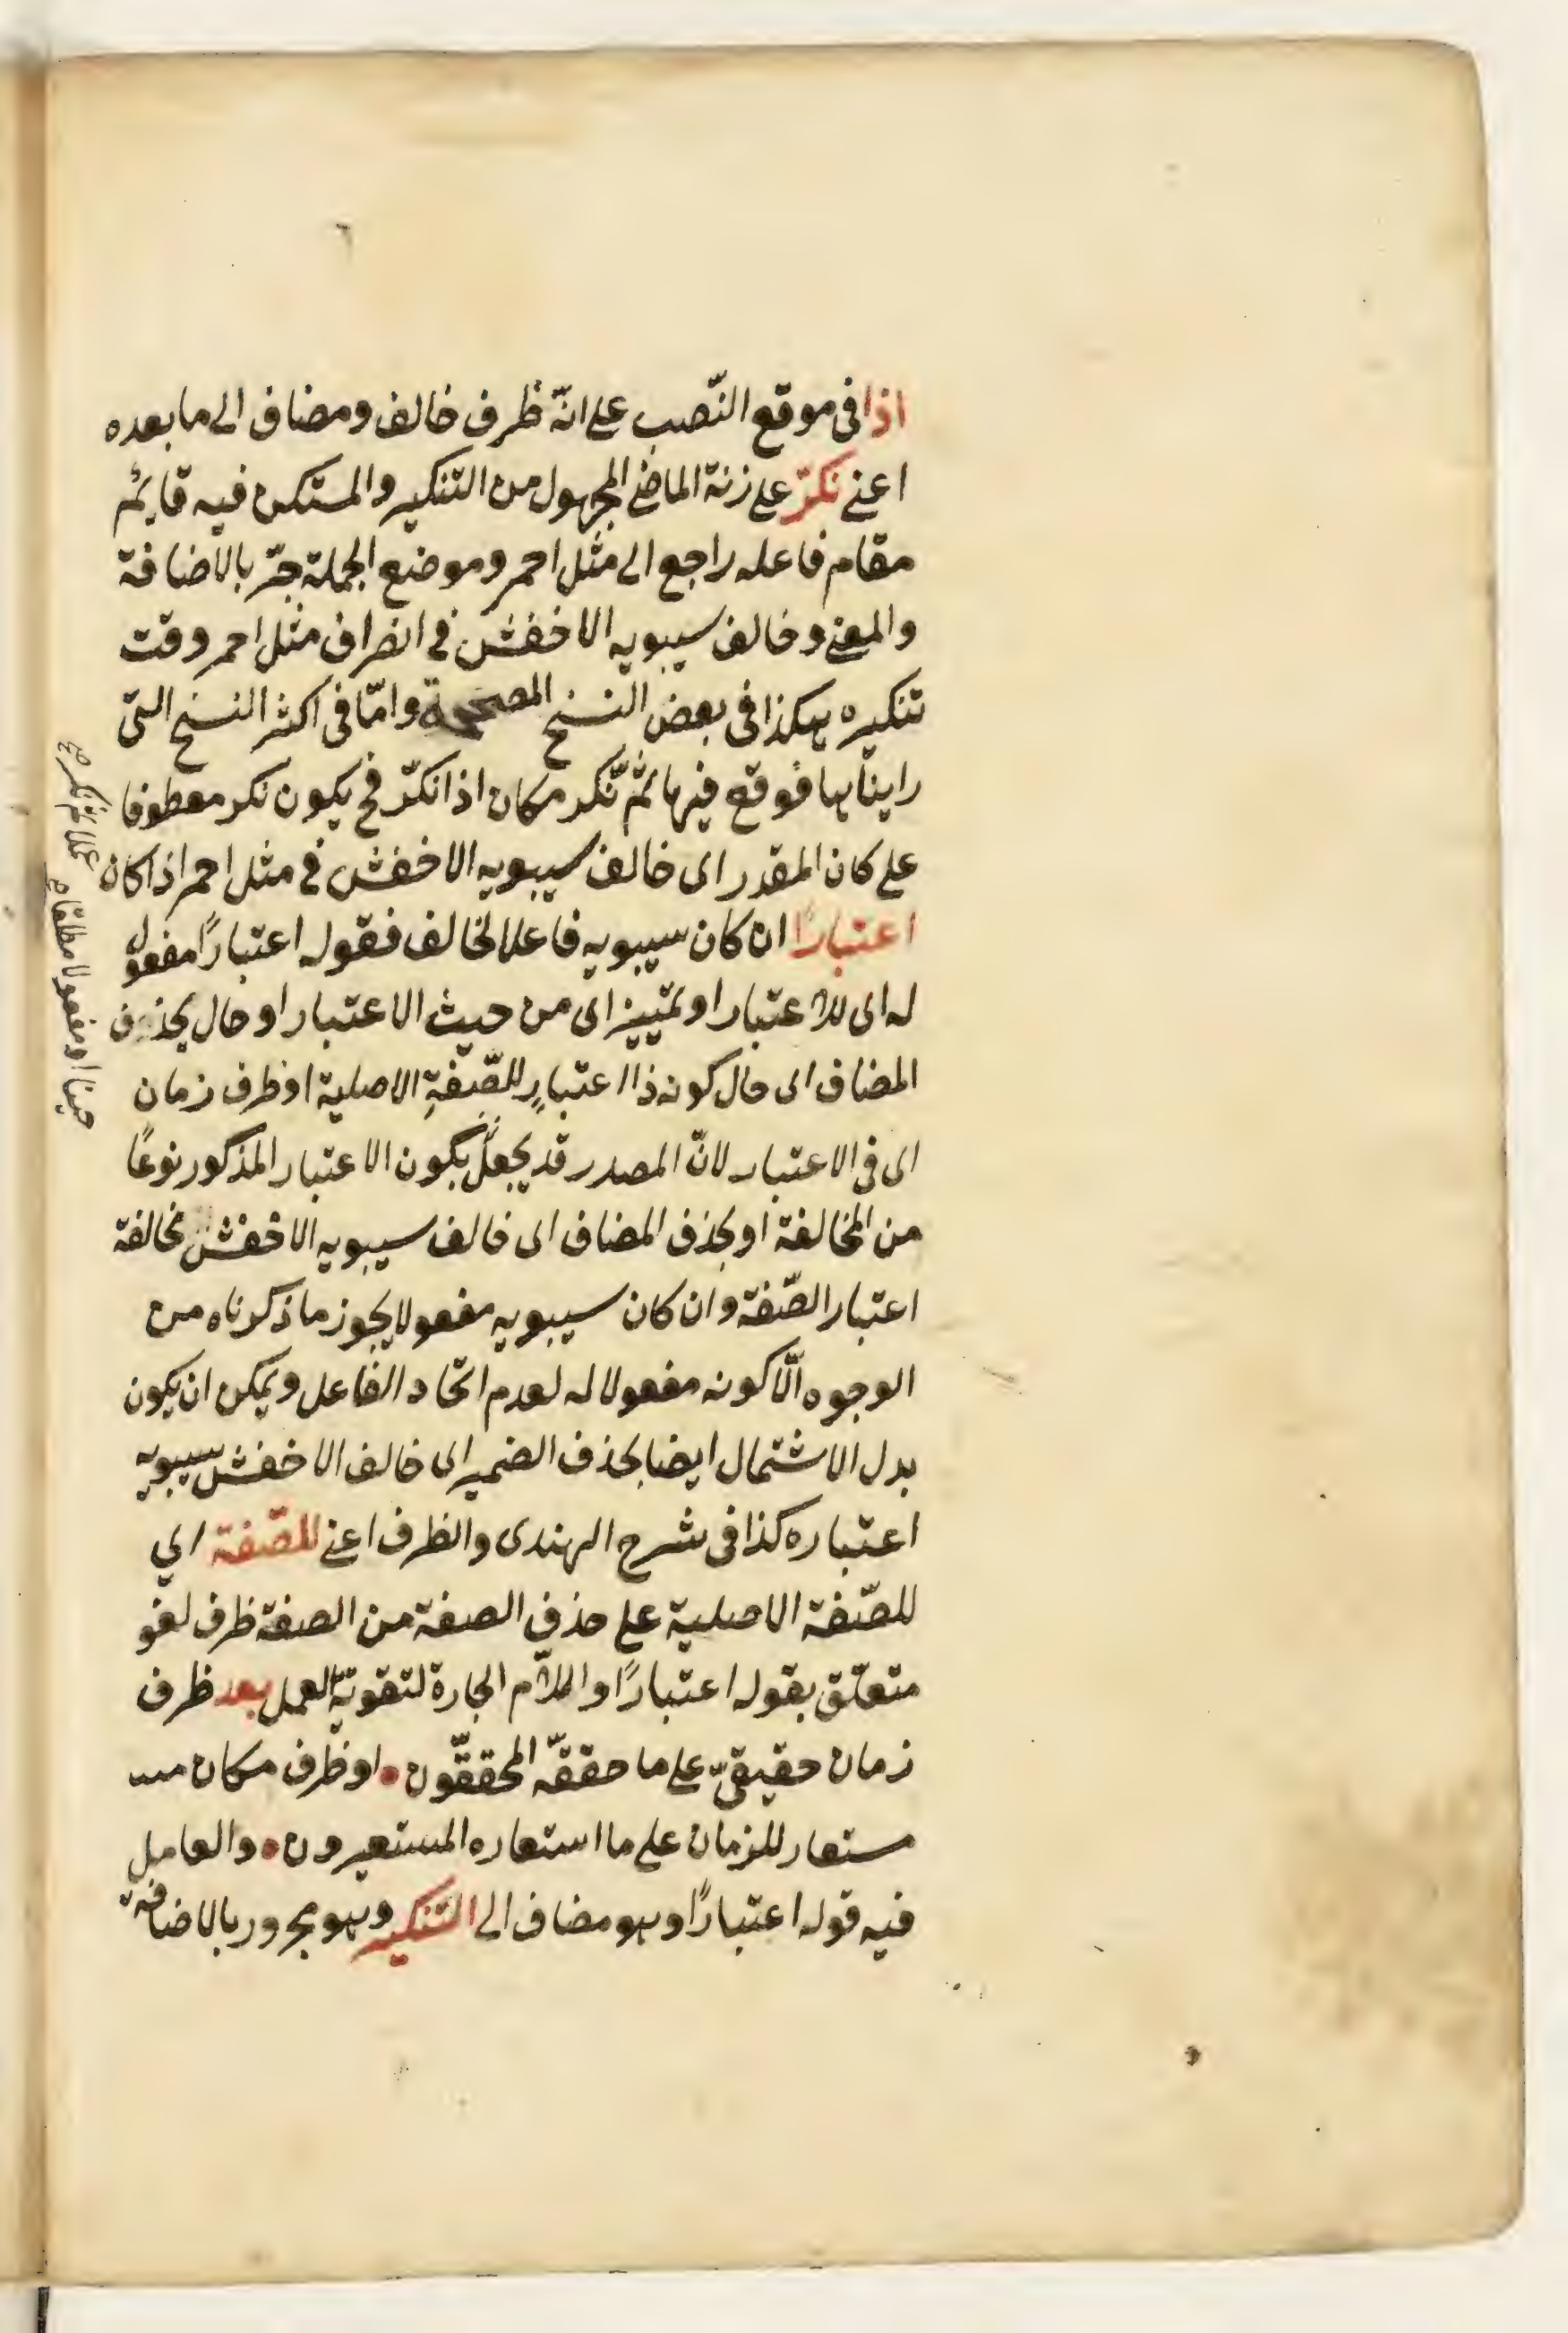 اذا فى موقع النّصب على انّه ظرف خالف ومضاف الى ما بعده
اعنى نكرّ على زنة الماضى المجهول من التنكير والمستكن فيه قايم
مقام فاعله راجع الى مثل احمر وموضع الجملة جرّ بالاضافة
والمعنى وخالف سيبويه الاخفش فى انصراف مثل احمر وقت
تنكيره هكذا فى بعض النسخ المصححة وامّا فى اكثر النسخ التى
رايناها فوقع فيها ثمّ نكّر مكان اذا نكرّ فح يكون نكر معطوفا
على كان المقدر اى خالف سيبويه الاخفش فى مثل احمر اذا كان
علما ثم نكر صح
اعتبارًا ان كان سيبويه فاعلا لخالف فقوله اعتبارًا مفعول
له اى للاعتبار او تمييز اى من حيث الاعتبار او حال بحذف
المضاف اى حال كونه ذا اعتبارٍ للصّفةِ الاصلية او ظرف زمان
اى فى الاعتبار لانّ المصدر قد يجعل يكون الاعتبار المذكور نوعًا
حينا او مفعولا مطلقا صح
من المخالفة او بحذف المضاف اى خالف سيبويه الاخفش مخالفة
اعتبار الصّفة وان كان سيبويه مفعولا يجوز ما ذكرناه من
الوجوه الّا كونه مفعولا له لعدم اتحاد الفاعل ويمكن ان يكون
بدل الاشتمال ايضا بحذف الضمير اى خالف الاخفش سيبويه
اعتباره كذا فى شرح الهندى والظرف اعنى للصّفة اي
للصّفة الاصلية على حذف الصفة من الصفة ظرف لغو
متعلّق بقوله اعتبارًا واللام الجارة لتقوية العمل بعد ظرف
زمان حقيقىّ على ما حققّه المحققّون • او ظرف مكان
مستعار للزمان على ما استعاره المستعيرون • والعامل
فيه قوله اعتبارًا وهو مضاف الى التنكير وهو مجرور بالاضافة